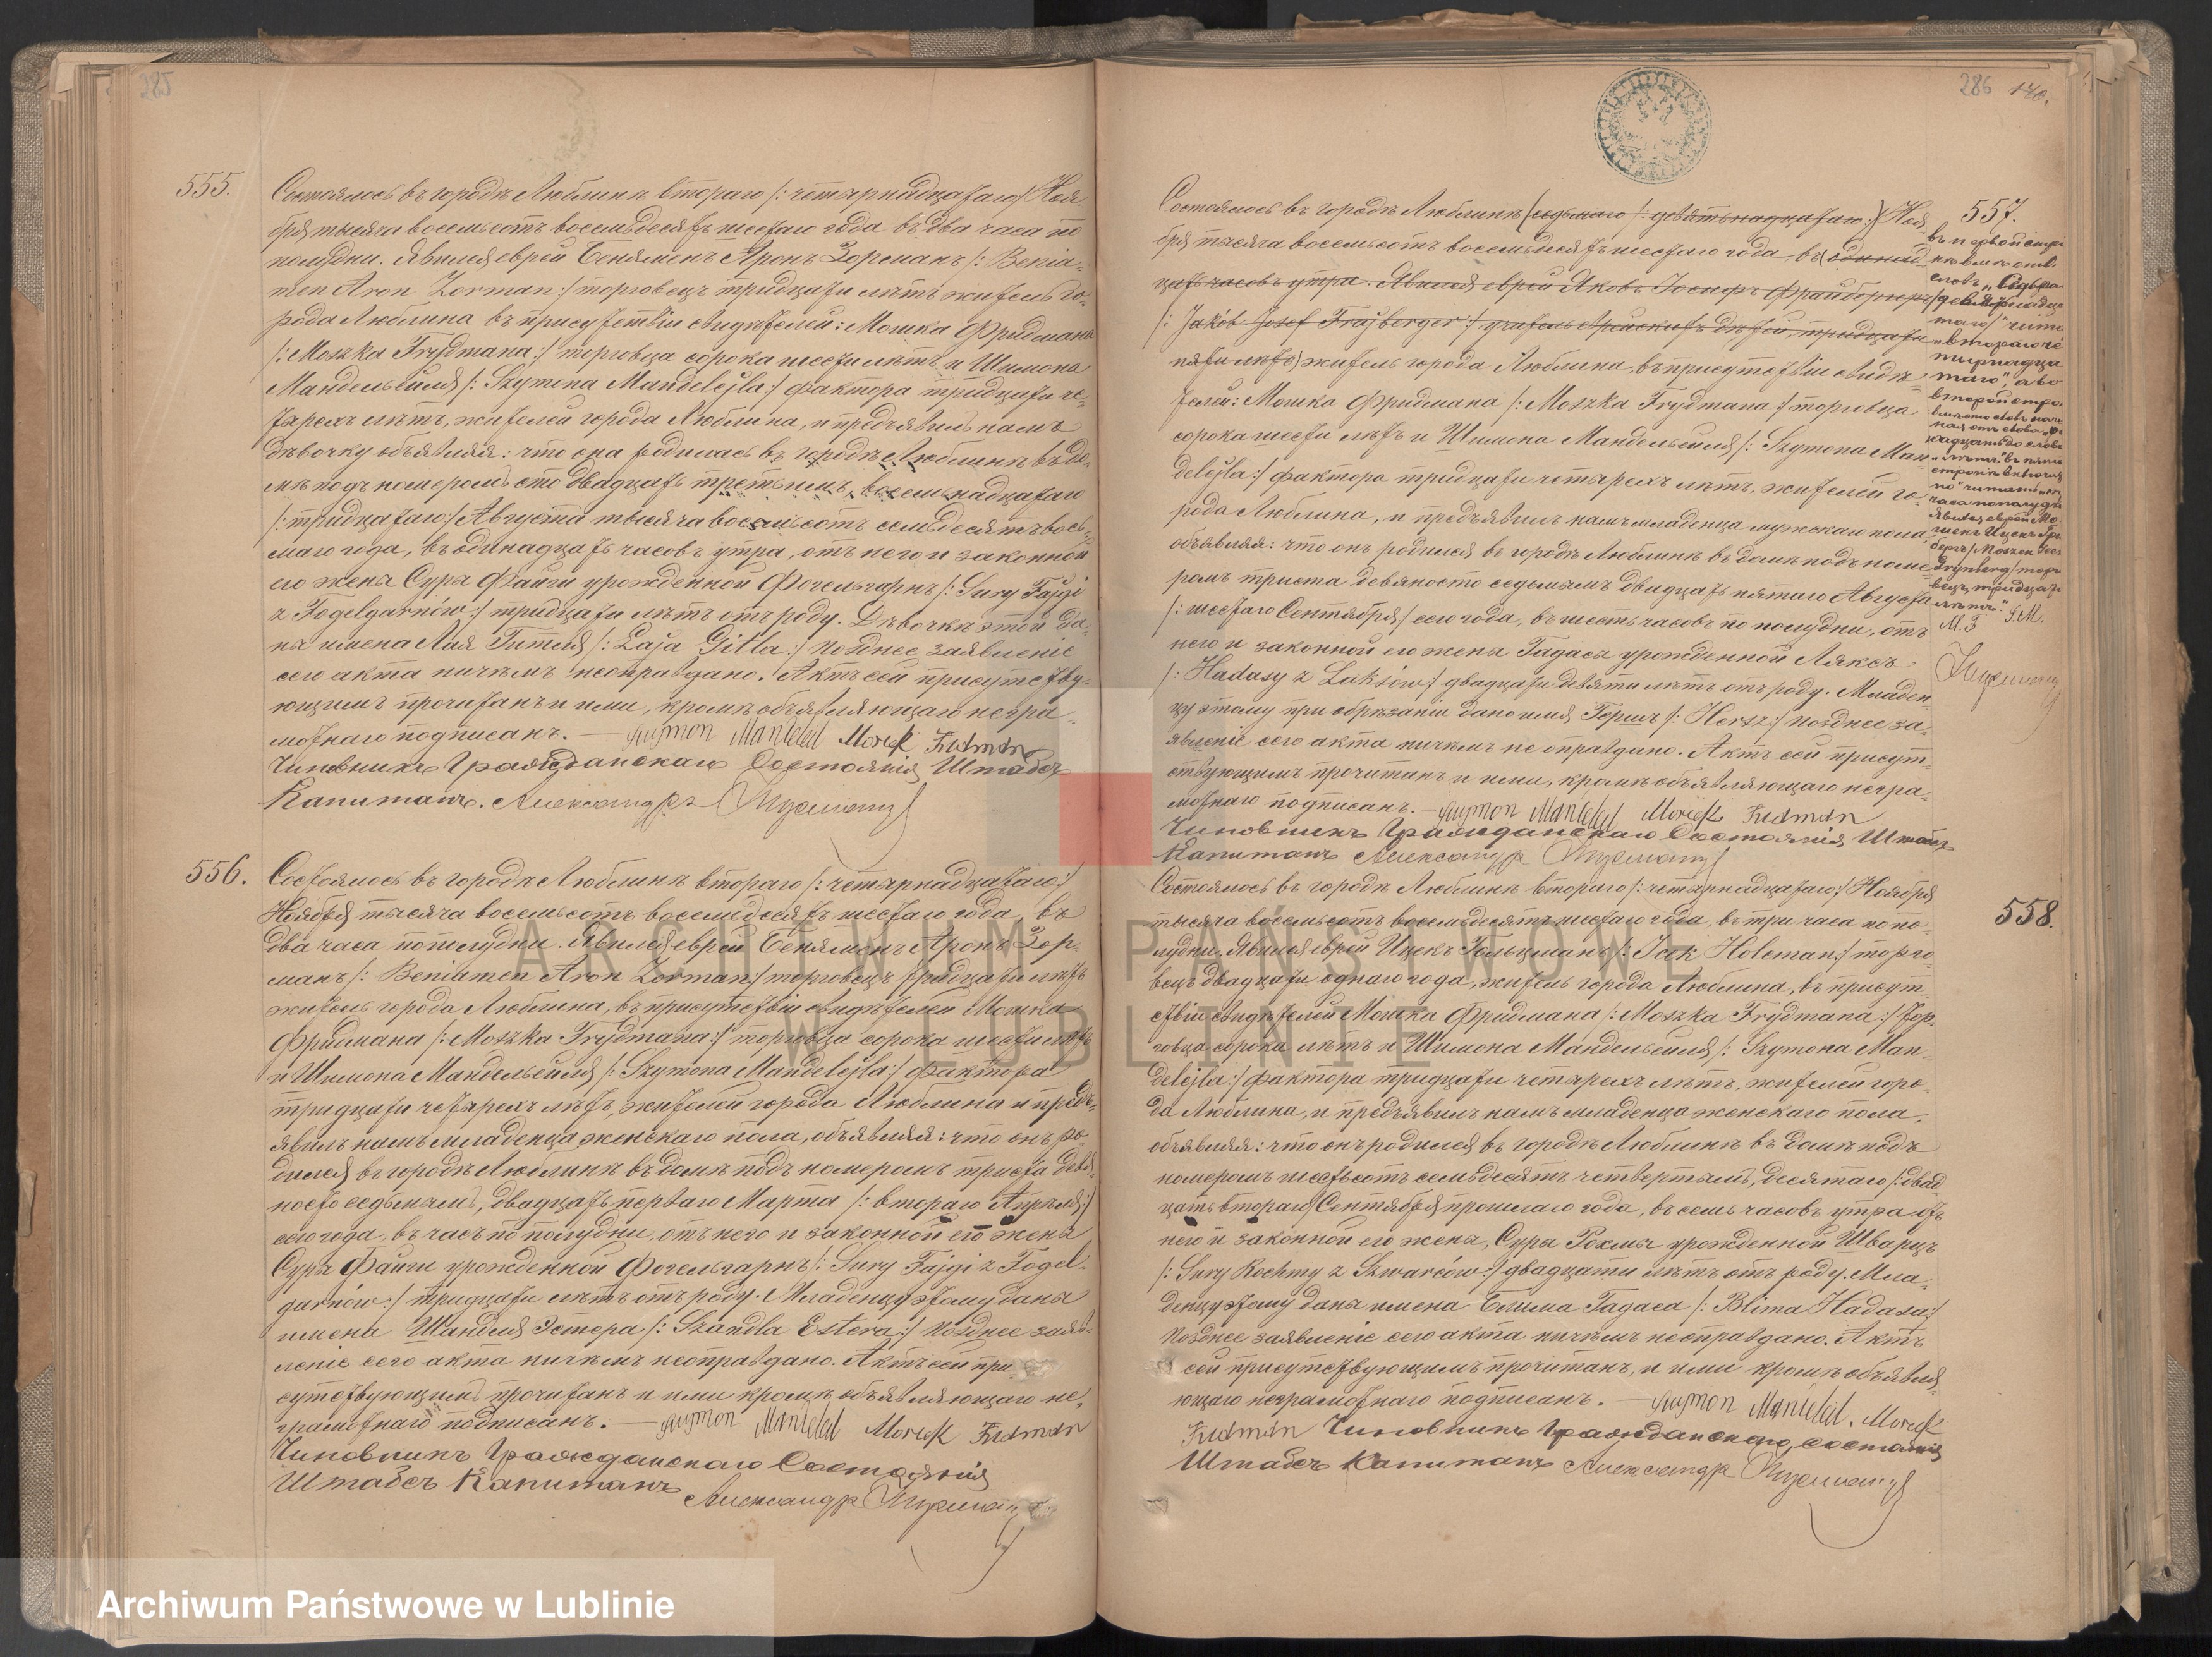 285
555.
Состоялось въ городѣ Люблинѣ втораго /: четырнадцатаго/ Ноя-
бря тысяча восемьсотъ восемьдесятъ шестаго года въ два часа по
полудни. Явился еврей Беняменъ Аронъ Зорманъ /: Benia-
men Aron Zorman :/ торговецъ тридцати лѣтъ житель го-
рода Люблина въ присутствіи свидѣтелей: Мошка Фридмана
/: Moszka Frydmana :/ торговца сорока шести лѣтъ и Шимона
Мандельейля /: Szymona Mandelejla :/ фактора тридцати че-
тырехъ лѣтъ, жителей города Люблина, и предъявилъ намъ
дѣвочку объявляя: что она родилась въ городѣ Люблинѣ въ до-
мѣ подъ номеромъ сто двадцать третьимъ, восемнадцатаго
/: тридцатаго :/ Августа тысяча восемьсотъ семьдесятъ вось-
маго года, въ одинадцать часовъ утра, отъ него и законной
его жены Суры Файги урожденной Фогельгарнъ /: Sury Fajgi
z Fogelgarnów :/ тридцати лѣтъ отъ роду. Дѣвочкѣ этой да-
ны имена Лая Гитля /: Łaja Gitla :/ позднее заявленіе
сего акта ничѣмъ неоправдано. Актъ сей присутству-
ющимъ прочитанъ и ими, кромѣ объявляющаго негра-
мотнаго подписанъ. — Szymon Mandelejl Moszek Fridman
Чиновникъ Гражданскаго Состоянія Штабсъ
Капитанъ. Александръ
556.
Состоялось въ городѣ Люблинѣ втораго /: четырнадцатаго :/
Ноября тысяча восемьсотъ восемьдесятъ шестаго года, въ
два часа по полудни. Явился еврей Беняменъ Аронъ Зор-
манъ /: Beniamen Aron Zorman :/ торговецъ тридцати лѣтъ
житель города Люблина, въ присутствіи свидѣтелей Мошка
Фридмана /: Moszka Frydmana :/ торговца сорока шести лѣтъ
и Шимона Мандельейля /: Szymona Mandelejla :/ фактора
тридцати четырехъ лѣтъ, жителей города Люблина и предъ-
явилъ намъ младенца женскаго пола, объявляя: что онъ ро-
дился въ городѣ Люблинѣ въ домѣ подъ номеромъ триста девя-
носто седьмымъ, двадцать перваго Марта /: втораго Апрѣля :/
сего года, въ часъ по полудни, отъ него и законной его жены
Суры Файги урожденной Фогельгарнъ /: Sury Fajgi z Fogel-
garnów :/ тридцати лѣтъ отъ роду. Младенцу этому даны
имена Шандля Эстера /: Szandla Estera :/ Позднее заяв-
леніе сего акта ничѣмъ неоправдано. Актъ сей при-
сутствующимъ прочитанъ и ими кромѣ объявляющаго не-
грамотнаго подписанъ. — Szymon Mandelejl Moszek Fridman
Чиновникъ Гражданскаго Состоянія
Штабсъ Капитанъ
Александръ
286 140.
557.
Состоялось въ городѣ Люблинѣ (седьмаго /: девятьнадцатаго :/) Ноя-
бря тысяча восемьсотъ восемьдесятъ шестаго года, въ (одинад-
цать часовъ утра. Явился еврей Яковъ Іосифъ Фрайбергеръ
/: Jakób Josef Frajberger :/ учитель еврейскихъ дѣтей, тридцати
пяти лѣтъ) житель города Люблина, въ присутствіи свидѣ-
телей: Мошка Фридмана /: Moszka Frydmana :/ торговца
сорока шести лѣтъ и Шимона Мандельейля /: Szymona Man-
delejla :/ фактора тридцати четырехъ лѣтъ, жителей го-
рода Люблина, и предъявилъ намъ младенца мужскаго пола,
объявляя: что онъ родился въ городѣ Люблинѣ въ домѣ подъ номе-
ромъ триста девяносто седьмымъ двадцать пятаго Августа
/: шестаго Сентября :/ сего года, въ шесть часовъ по полудни, отъ
него и законной его жены Гадасы урожденной Ляксъ
/: Hadasy z Laksów :/ двадцати девяти лѣтъ отъ роду. Младен-
цу этому при обрѣзаніи дано имя Гершъ /: Hersz :/ позднее за-
явленіе сего акта ничѣмъ не оправдано. Актъ сей присут-
ствующимъ прочитанъ и ими, кромѣ объявляющаго негра-
мотнаго подписанъ. — Szymon Mandelejl Moszek Fridman
Чиновникъ Гражданскаго Состоянія Штабсъ
Капитанъ Александръ
въ первой стро
кѣ вмѣсто
словъ „Седьма
го/девятьнадца
таго/" читать
„втораго че
тырнадца
таго", а во
второй строкѣ
вмѣсто словъ начи
ная отъ слова „
надцать" до слова
„лѣтъ" въ пятой
строкѣ включитель
но" читать „
часа пополудни
Явился еврей Мо
шекъ Ицекъ Грин
бергъ /Moszek Icek
Grynberg/ торго
вецъ тридцати
лѣтъ".
М.F S.M.
558.
Состоялось въ городѣ Люблинѣ втораго /: четырнадцатаго :/ Ноября
тысяча восемьсотъ восемьдесятъ шестаго года, въ три часа по по-
лудни. Явился еврей Ицекъ Гольцманъ /: Icek Holcman :/ торго-
вецъ двадцати однаго года, житель города Люблина, въ присут-
ствіи свидѣтелей Мошка Фридмана /: Moszka Frydmana :/ тор-
говца сорока лѣтъ и Шимона Мандельейля /: Szymona Man-
delejla :/ фактора тридцати четырехъ лѣтъ, жителей горо-
да Люблина, и предъявилъ намъ младенца женскаго пола,
объявляя: что онъ родился въ городѣ Люблинѣ въ домѣ подъ
номеромъ шестьсотъ семьдесятъ четвертымъ, десятаго /: двад-
цать втораго/ Сентября прошлаго года, въ семь часовъ утра отъ
него и законной его жены, Суры Рохмы урожденной Шварцъ
/: Sury Rochmy z Szwarców :/ двадцати лѣтъ отъ роду. Мла-
денцу этому даны имена Блима Гадаса /: Blima Hadasa :/
Позднее заявленіе сего акта ничѣмъ неоправдано. Актъ
сей присутствующимъ прочитанъ, и ими кромѣ объявля-
ющаго неграмотнаго подписанъ. — Szymon Mandelejl. Moszek
Fridman Чиновникъ Гражданскаго состоянія
Штабсъ Капитанъ Александръ
ARCHIWUM PAŃSTWOWE
W LUBLINIE
Archiwum Państwowe w Lublinie